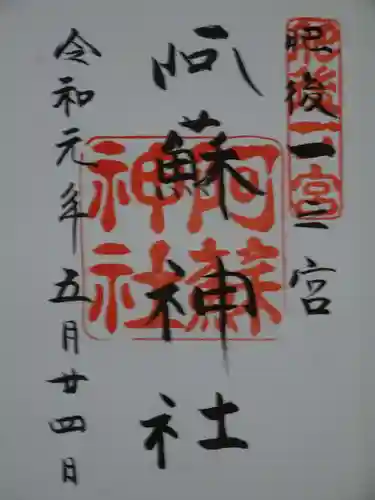 肥後一二宮
阿蘇神社
令和元年五月廿四日
肥後一宮
阿蘇
神社